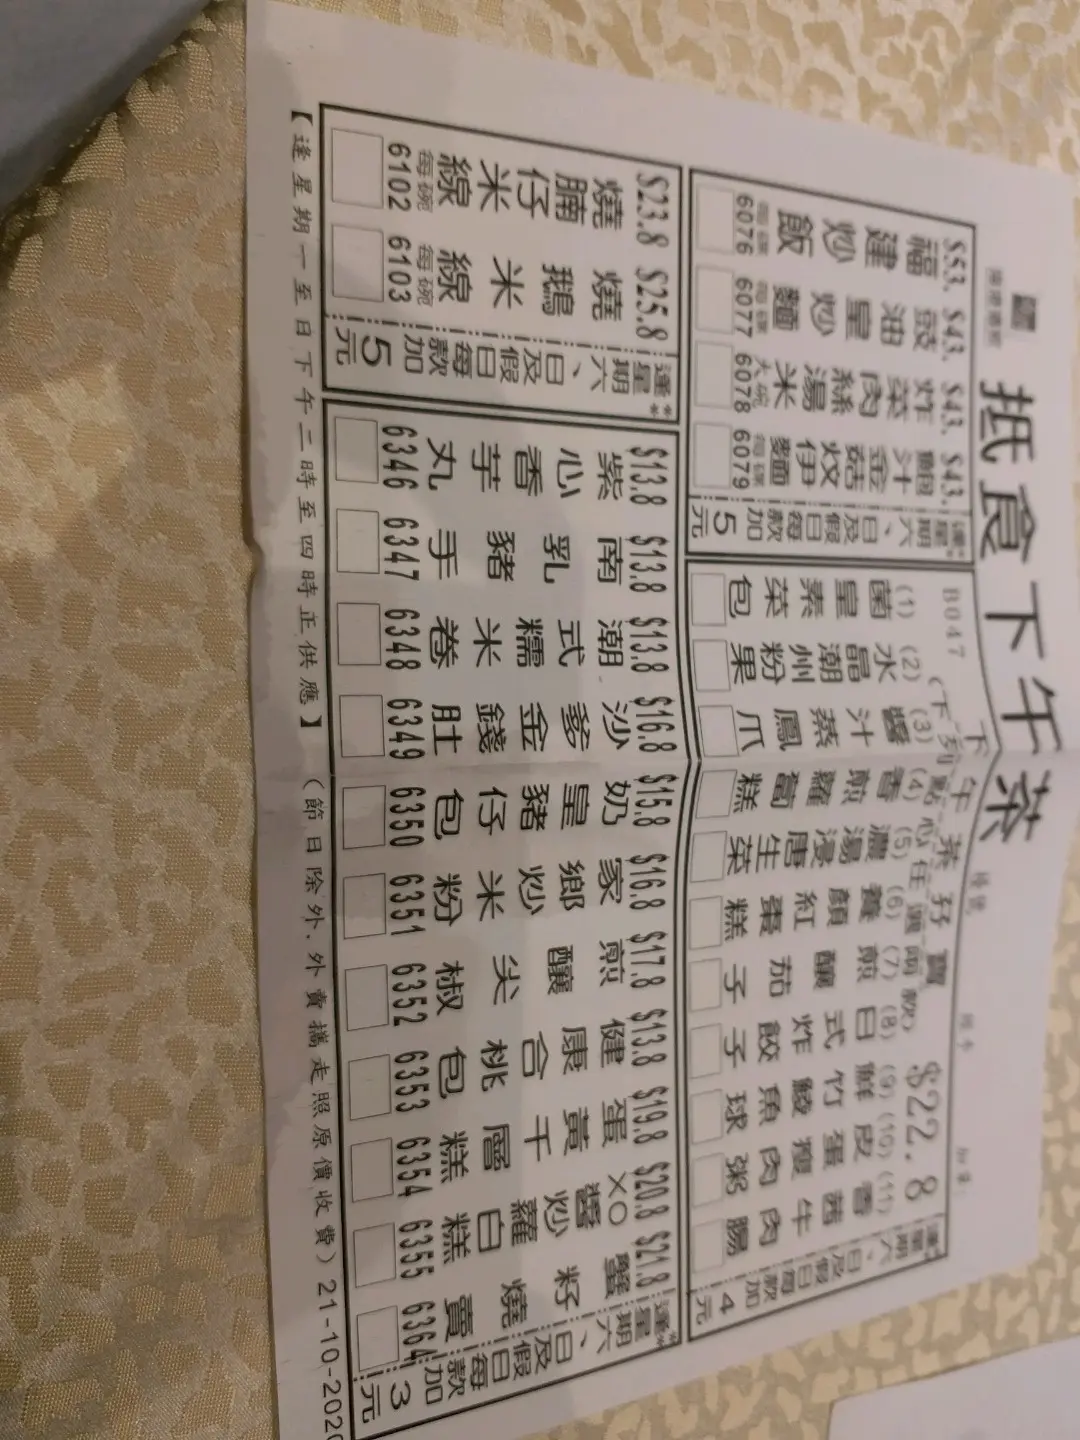 抵食下午茶
$53. $43. $43. $43.
福建炒飯
豉油皇炒麵
炸菜肉絲湯米
鮑汁金菇炆伊麵
每碟 每碟 大碗 每碟
6076 6077 6078 6079
逢星期六、日及假日每款加5元
B047
下午茶孖寶 $22.8
(下列點心任選兩款)
(1) 菌皇素菜包
(2) 水晶潮州粉果
(3) 醬汁蒸鳳爪
(4) 香煎蘿蔔糕
(5) 濃湯浸唐生菜
(6) 養顏紅棗糕
(7) 煎釀茄子
(8) 日式炸餃子
(9) 鮮竹鯪魚球
(10) 皮蛋瘦肉粥
(11) 香茜牛肉腸
逢星期六、日及假日每款加4元
$23.8 燒腩仔米線 每碗 6102
$25.8 燒鵝米線 每碗 6103
**逢星期六、日及假日每款加5元
$13.8 紫心香芋丸 6346
$13.8 南乳豬手 6347
$13.8 潮式糯米卷 6348
$16.8 沙爹金錢肚 6349
$15.8 奶皇豬仔包 6350
$16.8 家鄉炒米粉 6351
$17.8 煎釀尖椒 6352
$13.8 健康合桃包 6353
$19.8 蛋黃千層糕 6354
$20.8 XO醬炒蘿白糕 6355
$21.8 蟹籽燒賣 6364
**逢星期六、日及假日每款加3元
【逢星期一至日下午二時至四時正供應】(節日除外.外賣攜走照原價收費) 21-10-2020